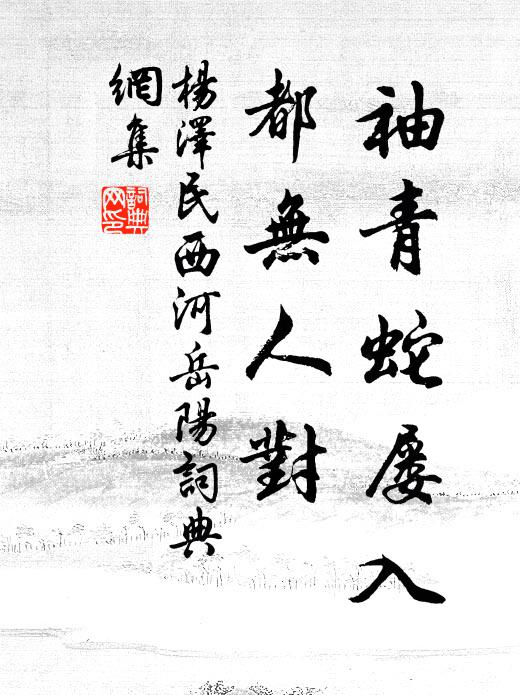 袖青蛇屡入
都無人對
楊澤民西河岳陽詞典
網集
詞典網印